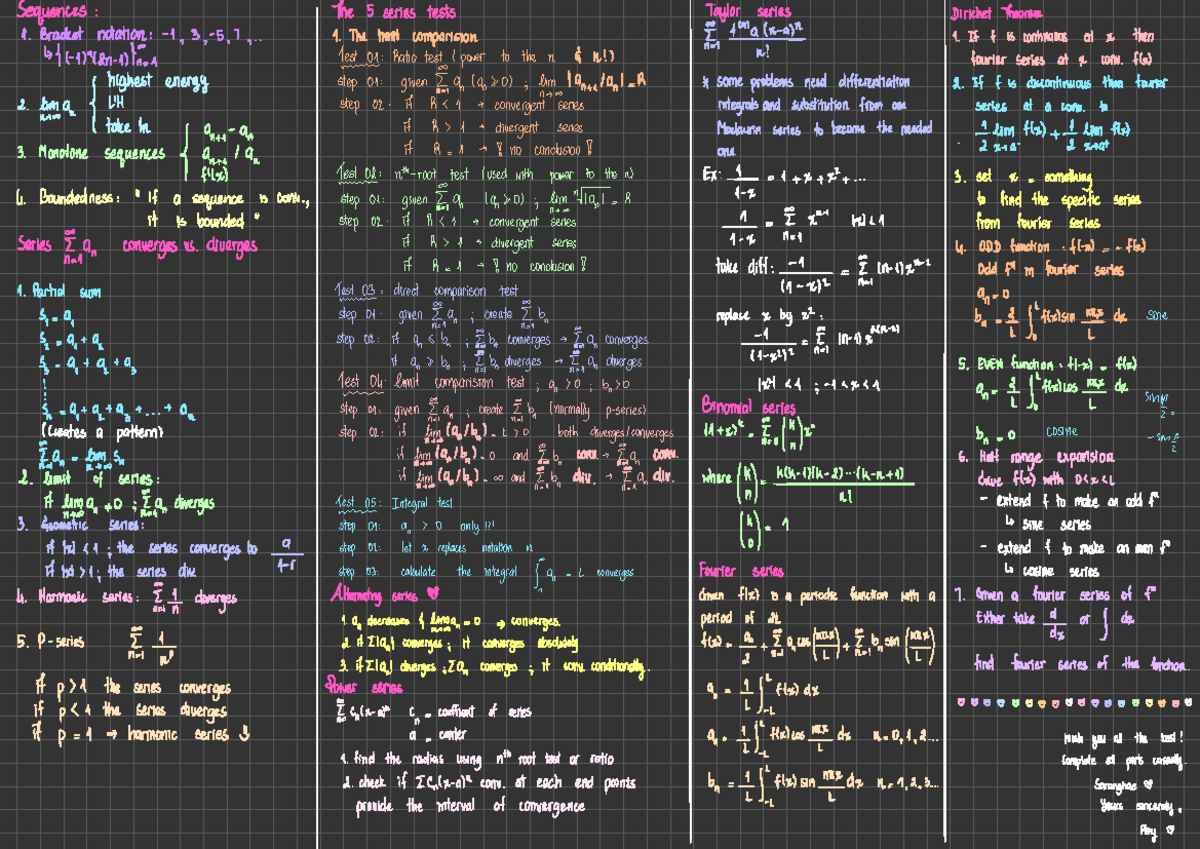 Sequences :
1. Bracket notation : -1 , 3 , -5 , 7 , ...
↳ {(-1)ⁿ(2n-1)}^∞_{n=1}
2. lim_{n→∞} aₙ { highest energy
L'H
take ln
3. Monotone sequences { aₙ₊₁ - aₙ
aₙ₊₁ / aₙ
f'(x)
4. Boundedness : " If a sequence is conv.,
it is bounded "
Series Σ_{n=1}^∞ aₙ converges vs. diverges
1. Partial sum
S₁ = a₁
S₂ = a₁ + a₂
S₃ = a₁ + a₂ + a₃
⋮
Sₙ = a₁ + a₂ + a₃ + ... + aₙ
(creates a pattern)
Σ_{n=1}^∞ aₙ = lim_{n→∞} Sₙ
2. limit of series :
if lim_{n→∞} aₙ ≠ 0 ; Σ_{n=1}^∞ aₙ diverges
3. Geometric series :
if |r| < 1 ; the series converges to a/(1-r)
if |r| > 1 ; the series div.
4. Harmonic series : Σ_{n=1}^∞ 1/n diverges
5. P-series Σ_{n=1}^∞ 1/nᵖ
if p > 1 the series converges
if p < 1 the series diverges
if p = 1 → harmonic series
The 5 series tests
1. The limit comparision
Test 01 : Ratio test ( power to the n & n! )
step 01 : given Σ_{n=1}^∞ aₙ (aₙ > 0) ; lim_{n→∞} |aₙ₊₁/aₙ| = R
step 02 : if R < 1 → convergent series
if R > 1 → divergent series
if R = 1 → ! no conclusion !
Test 02 : nᵗʰ-root test (used with power to the n)
step 01 : given Σ_{n=1}^∞ aₙ (aₙ > 0) ; lim_{n→∞} ⁿ√|aₙ| = R
step 02 : if R < 1 → convergent series
if R > 1 → divergent series
if R = 1 → ! no conclusion !
Test 03 : direct comparison test
step 01 : given Σ_{n=1}^∞ aₙ ; create Σ_{n=1}^∞ bₙ
step 02 : if aₙ ≤ bₙ ; Σ_{n=1}^∞ bₙ converges → Σ_{n=1}^∞ aₙ converges
if aₙ ≥ bₙ ; Σ_{n=1}^∞ bₙ diverges → Σ_{n=1}^∞ aₙ diverges
Test 04 : limit comparision test ; aₙ > 0 ; bₙ > 0
step 01 : given Σ_{n=1}^∞ aₙ ; create Σ_{n=1}^∞ bₙ (normally p-series)
step 02 : if lim_{n→∞} (aₙ/bₙ) = L > 0 both diverges/converges
if lim_{n→∞} (aₙ/bₙ) = 0 and Σ_{n=1}^∞ bₙ conv. → Σ_{n=1}^∞ aₙ conv.
if lim_{n→∞} (aₙ/bₙ) = ∞ and Σ_{n=1}^∞ bₙ div. → Σ_{n=1}^∞ aₙ div.
Test 05 : Integral test
step 01 : aₙ > 0 only !!!
step 02 : let x replaces notation n
step 03 : calculate the integral ∫₁^∞ aₙ = L converges
Alternating series ♥
1. aₙ decreases & lim_{n→∞} aₙ = 0 → converges.
2. if Σ|aₙ| converges ; it converges absolutely
3. if Σ|aₙ| diverges ; Σaₙ converges ; it conv. conditionally.
Power series
Σ_{n=1}^∞ cₙ(x-a)ⁿ cₙ = coeffient of series
a = center
1. find the radius using nᵗʰ root test or ratio
2. check if Σcₙ(x-a)ⁿ conv. at each end points
provide the interval of convergence
Taylor series
Σ_{n=1}^∞ f⁽ⁿ⁾a (x-a)ⁿ / n!
* some problems need differentiation
integrals and substitution from one
Maclaurin series to become the needed
one
Ex : 1/(1-x) = 1 + x + x² + ...
1/(1-x) = Σ_{n=1}^∞ xⁿ⁻¹ |x| < 1
take diff : -1/(1-x)² = Σ_{n=1}^∞ (n-1)xⁿ⁻²
replace x by x² :
-1/(1-x²)² = Σ_{n=1}^∞ (n-1) x²⁽ⁿ⁻²⁾
|x²| < 1 ; -1 < x < 1
Binomial series
(1+x)ᵏ = Σ_{n=0}^∞ (k n) xⁿ
where (k n) = k(k-1)(k-2)...(k-n+1) / n!
(k 0) = 1
Fourier series
Given f(x) is a periodic function with a
period of 2L
f(x) = a₀/2 + Σ_{n=1}^∞ aₙ cos(nπx/L) + Σ_{n=1}^∞ bₙ sin(nπx/L)
a₀ = 1/L ∫_{-L}^{L} f(x) dx
aₙ = 1/L ∫_{-L}^{L} f(x) cos nπx/L dx n = 0, 1, 2 ...
bₙ = 1/L ∫_{-L}^{L} f(x) sin nπx/L dx n = 1, 2, 3 ...
Dirichet Theorem
1. If f is continuous at x then
fourier series at x conv. f(x)
2. If f is discontinuous then fourier
series at a conv. to
1/2 lim_{x→a⁻} f(x) + 1/2 lim_{x→a⁺} f(x)
3. set x = something
to find the specific series
from fourier series
4. ODD function : f(-x) = - f(x)
Odd fⁿ in fourier series
aₙ = 0
bₙ = 2/L ∫₀^L f(x) sin nπx/L dx sine
5. EVEN function : f(-x) = f(x)
aₙ = 2/L ∫₀^L f(x) cos nπx/L dx
bₙ = 0 cosine
6. Half range expansion
Give f(x) with 0 < x < L
- extend f to make an odd fⁿ
↳ sine series
- extend f to make an even fⁿ
↳ cosine series
7. Given a fourier series of fⁿ
Either take d/dx or ∫ dx
find fourier series of the function.
Wish you all the best !
Complete all parts carefully
Saranghae ♡
Yours sincerely,
Ploy ♡